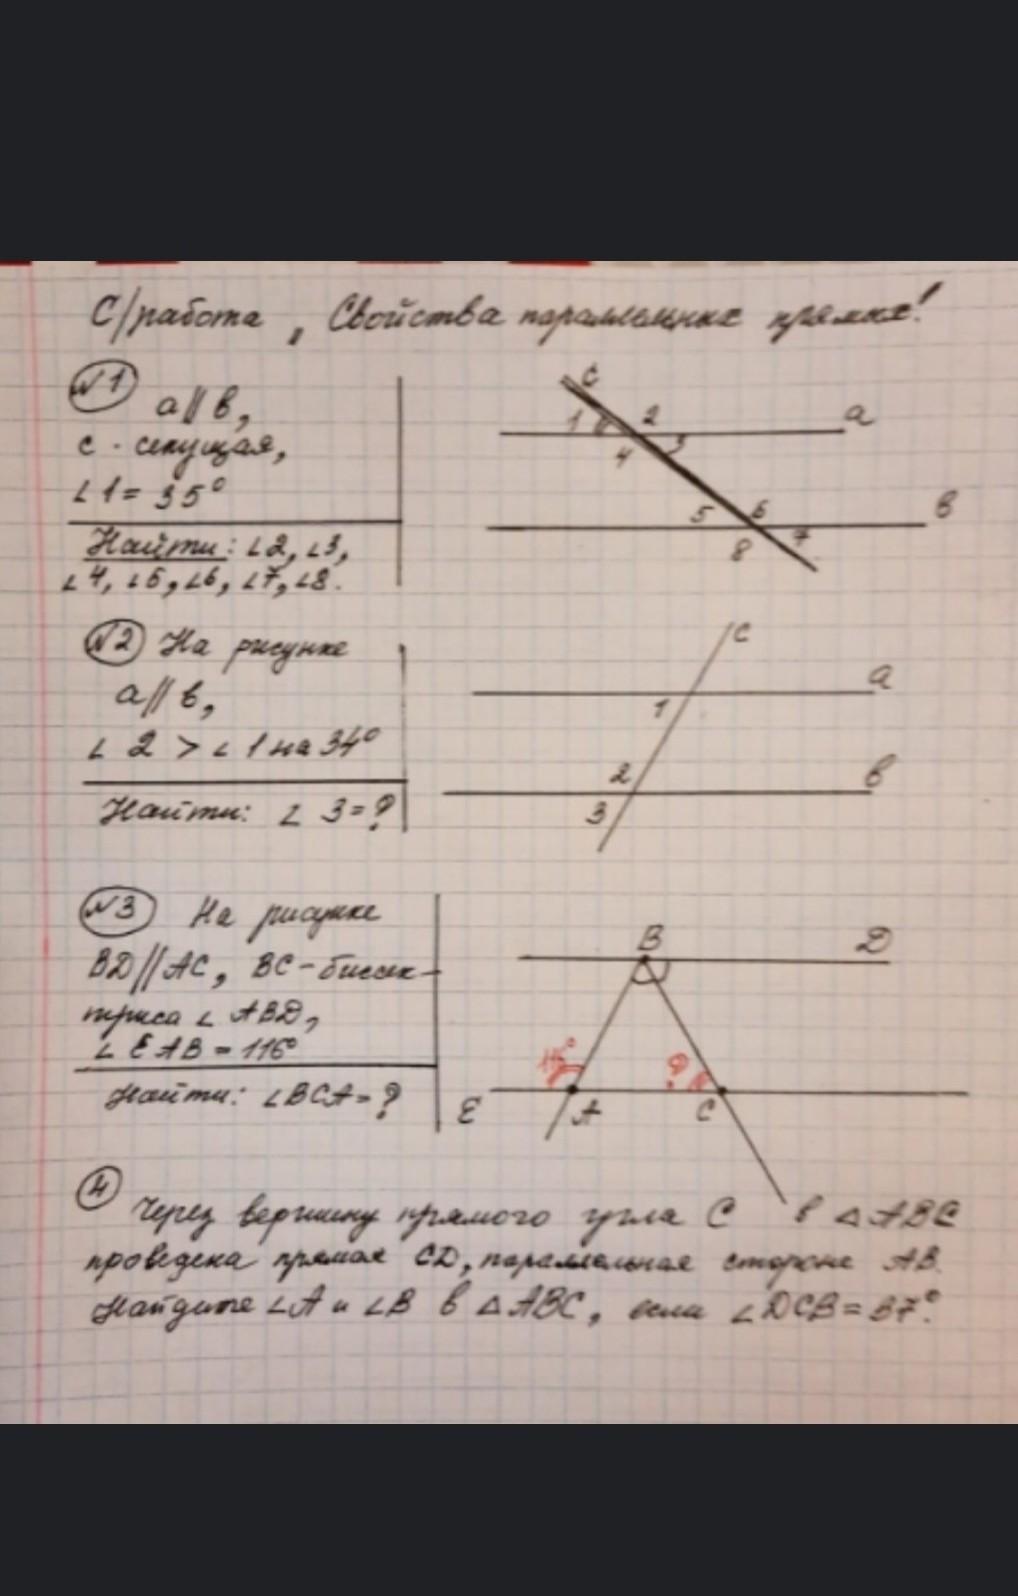 С/работа „Свойства параллельных прямых!
№1 a || b,
c - секущая,
∠1 = 35°
Найти: ∠2, ∠3,
∠4, ∠5, ∠6, ∠7, ∠8.
c
1 2 a
4 3
5 6 b
8 7
№2 На рисунке
a || b,
∠2 > ∠1 на 34°
Найти: ∠3 = ?
c
a
1
2 b
3
№3 На рисунке
BD || AC, BC - биссек-
триса ∠ABD,
∠EAB = 116°
Найти: ∠BCA = ?
B D
116° ?
E A C
4 Через вершину прямого угла C в △ABC
проведена прямая CD, параллельная стороне AB.
Найдите ∠A и ∠B в △ABC, если ∠DCB = 37°.